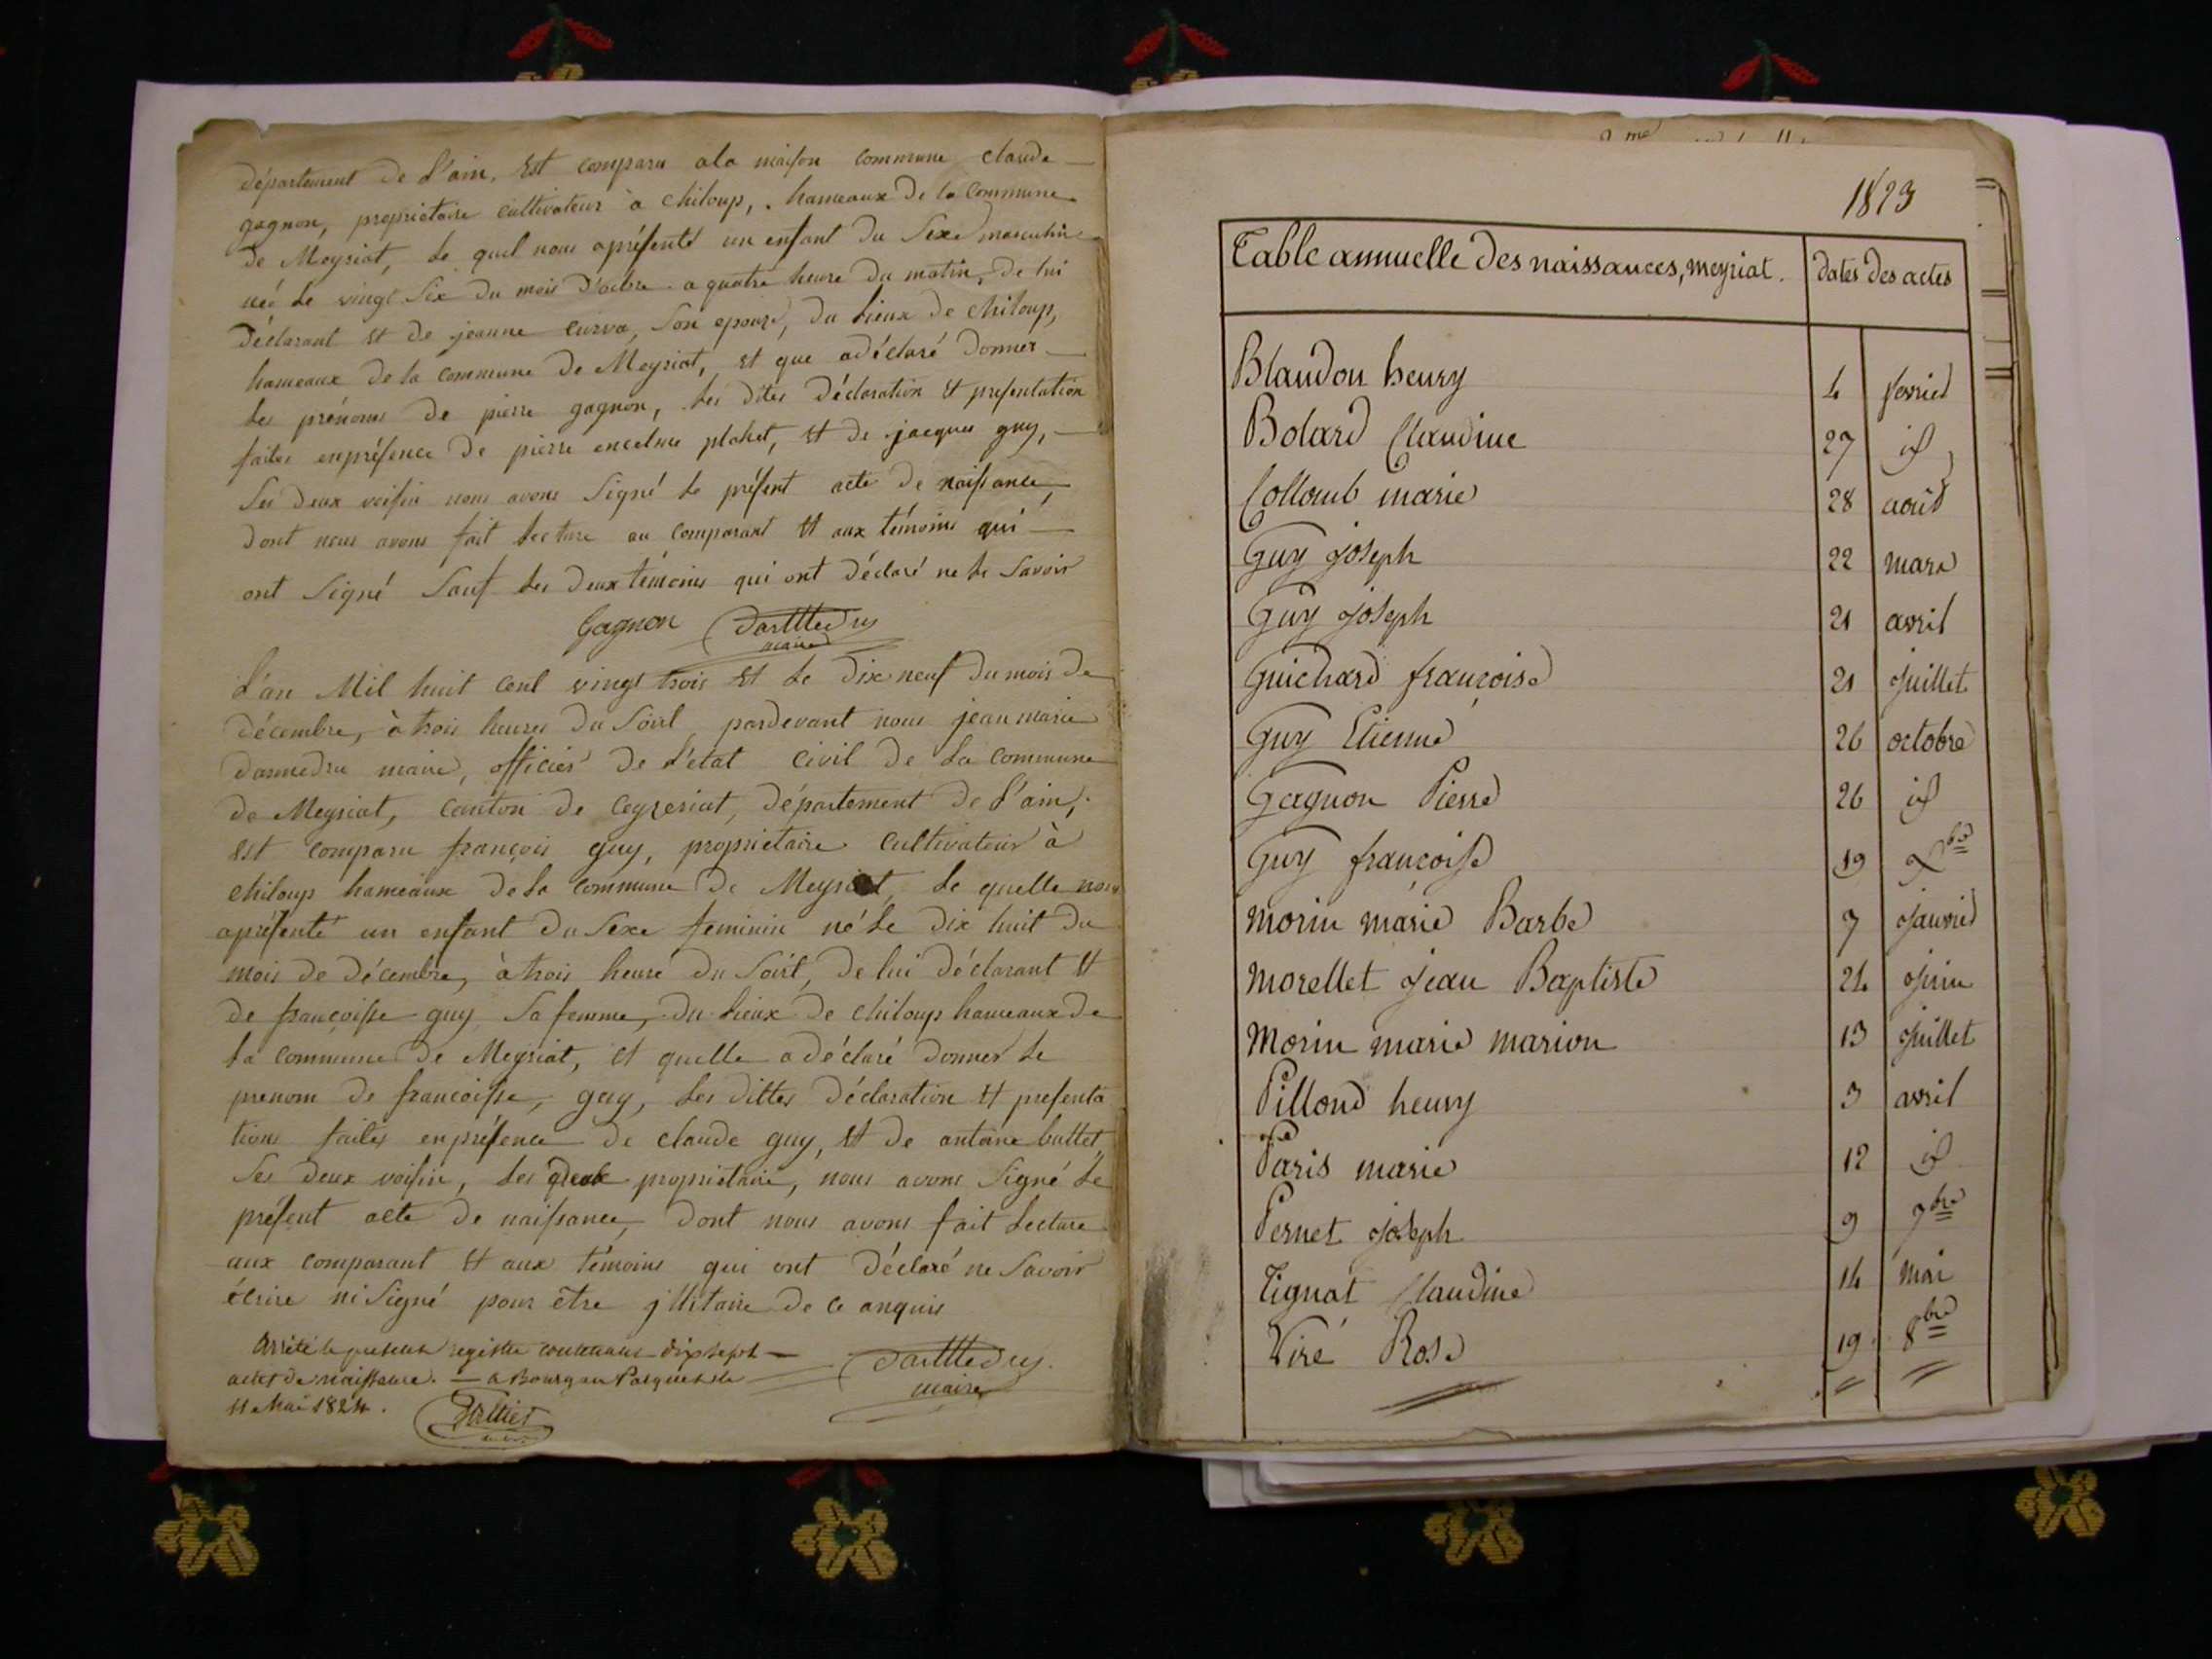 département de l'ain, Est comparu ala maison commune claude
gagnon, propriétaire cultivateur à chiloup, hameaux de la Commune
de Meyriat, le quel nous aprésenté un enfant du Sexe masculin
neé le vingt Six du mois d'octbre a quatre heure du matin, de lui
déclarant et de jeanne curva, Son epouze, du Lieux de chiloup,
hameaux de la commune de Meyriat, et que adéclaré donner
les prénoms de pierre gagnon, les dites déclaration et presentation
faites enprésence de pierre encelme plohet, et de jacques guy,
Ses deux voisin nous avons Signé le présent acte de naissance,
dont nous avons fait lecture au comparant et aux témoins qui
ont Signé Sauf les deux témoins qui ont déclaré ne le Savoir
Gagnon
maire
L'an Mil huit cent vingt trois et le dix neuf du mois de
décembre, à trois heures du Soirl pardevant nous jean marie
maire, officier de L'état Civil de la commune
de Meyriat, canton de Ceyzeriat, département de L'ain,
est comparu françois guy, propriétaire Cultivateur à
chiloup hameaux de la commune de Meyriat, le quelle nous
aprésenté un enfant du Sexe feminin né le dix huit du
mois de décembre, à trois heure du Soirl, de lui déclarant et
de françoisse guy Sa femme, du Lieux de chiloup hameaux de
la commune de Meyriat, et quelle adéclaré donner le
prenom de francoisse, guy, les dittes déclaration et presenta
tions faites enprésence de claude guy, et de antoine buttet,
Ses deux voisin, les deux propriétaire, nous avons Signé le
présent acte de naissance, dont nous avons fait Lecture
aux comparant et aux témoins qui ont déclaré ne Savoir
écrire ni Signé pour être jllitaire de ce anquis
Arrêté le present registre contenant dix sept
actes de naissance. — a Bourg au Parquet le
11 Mai 1824.
maire
1823
Table annuelle des naissances, meyriat. dates des actes
Blaudon henry 4 fevrier
Bolard Claudine 27 id
Collomb marie 28 août
Guy joseph 22 mars
Guy joseph 21 avril
Guichard françoise 21 juillet
Guy Etienne 26 octobre
Gagnon Pierre 26 id
Guy francoise 19 Xbre
Morin marie Barbe 7 janvier
Morellet jean Baptiste 24 juin
Morin marie marion 13 juillet
Pillond henry 3 avril
Paris marie 12 id
Pernet joseph 9 7bre
Tignat Claudine 14 mai
Viré Rose 19 8bre